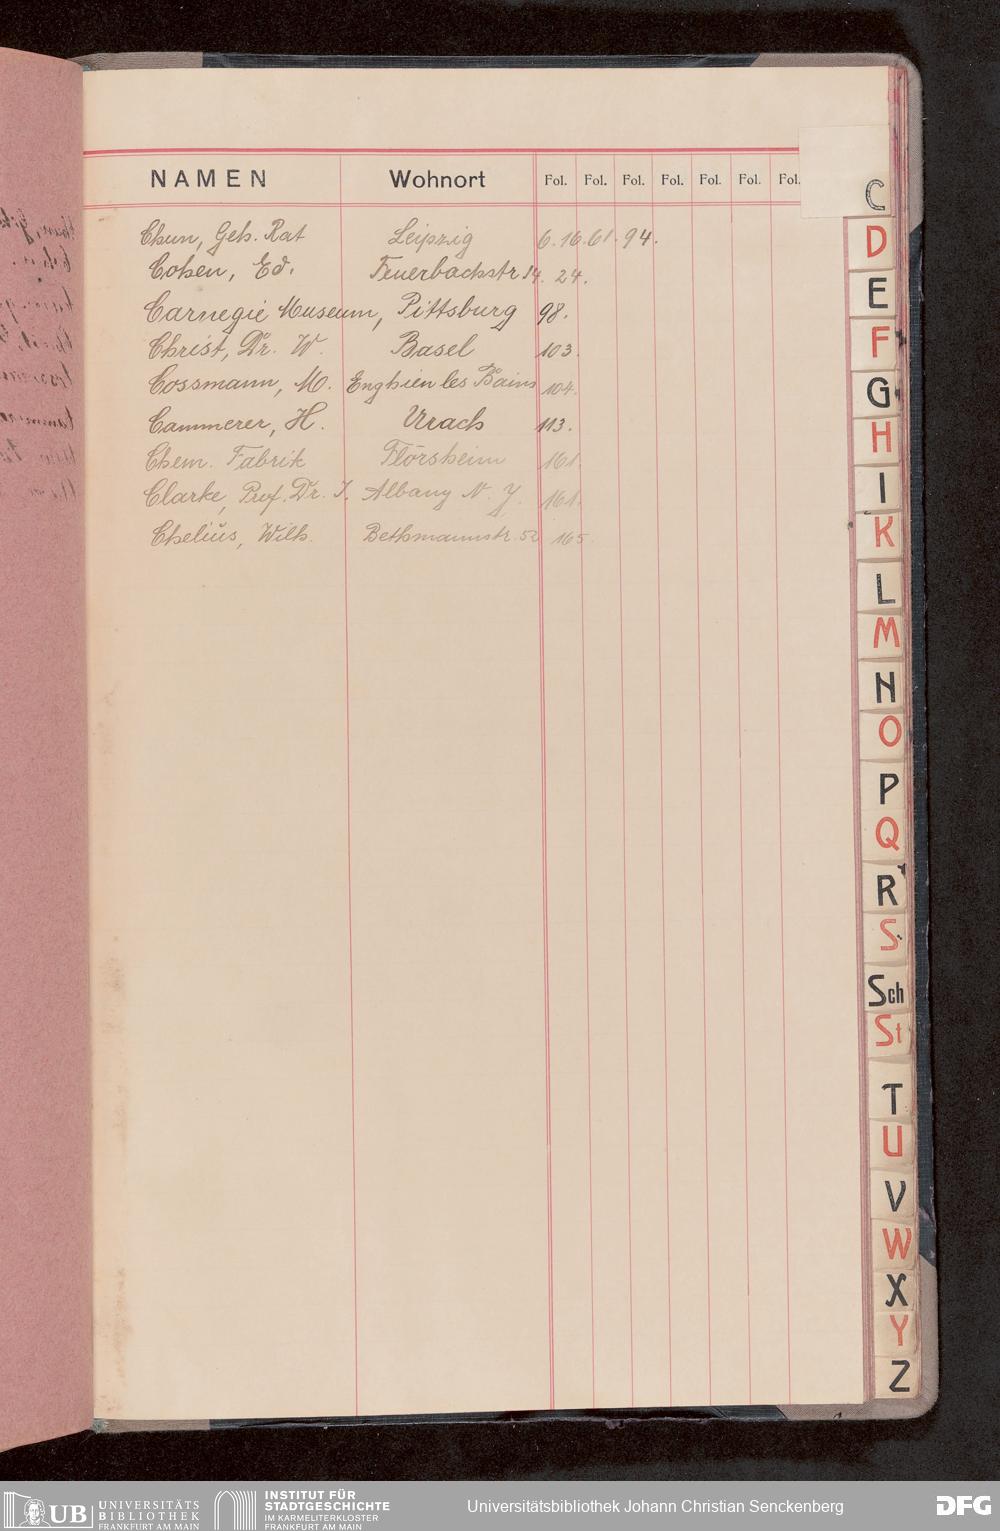 NAMEN Wohnort Fol. Fol. Fol. Fol. Fol. Fol. Fol.
Chun, Geh. Rat Leipzig 6. 16. 61. 94.
Cohen, Ed. Feuerbachstr 14. 24.
Carnegie Museum, Pittsburg 98.
Christ, Dr. W. Basel 103.
Cossmann, M. Enghien les Bains 104.
Cammerer, H. Urach 113.
Chem. Fabrik Flörsheim 161.
Clarke, Prof. Dr. J. Albany N. Y. 161.
Chelius, Wilh. Bethmannstr. 52 165.
C
D
E
F
G
H
I
K
L
M
N
O
P
Q
R
S
Sch
St
T
U
V
W
X
Y
Z
UB UNIVERSITÄTS
BIBLIOTHEK
FRANKFURT AM MAIN
INSTITUT FÜR
STADTGESCHICHTE
IM KARMELITERKLOSTER
FRANKFURT AM MAIN
Universitätsbibliothek Johann Christian Senckenberg
DFG